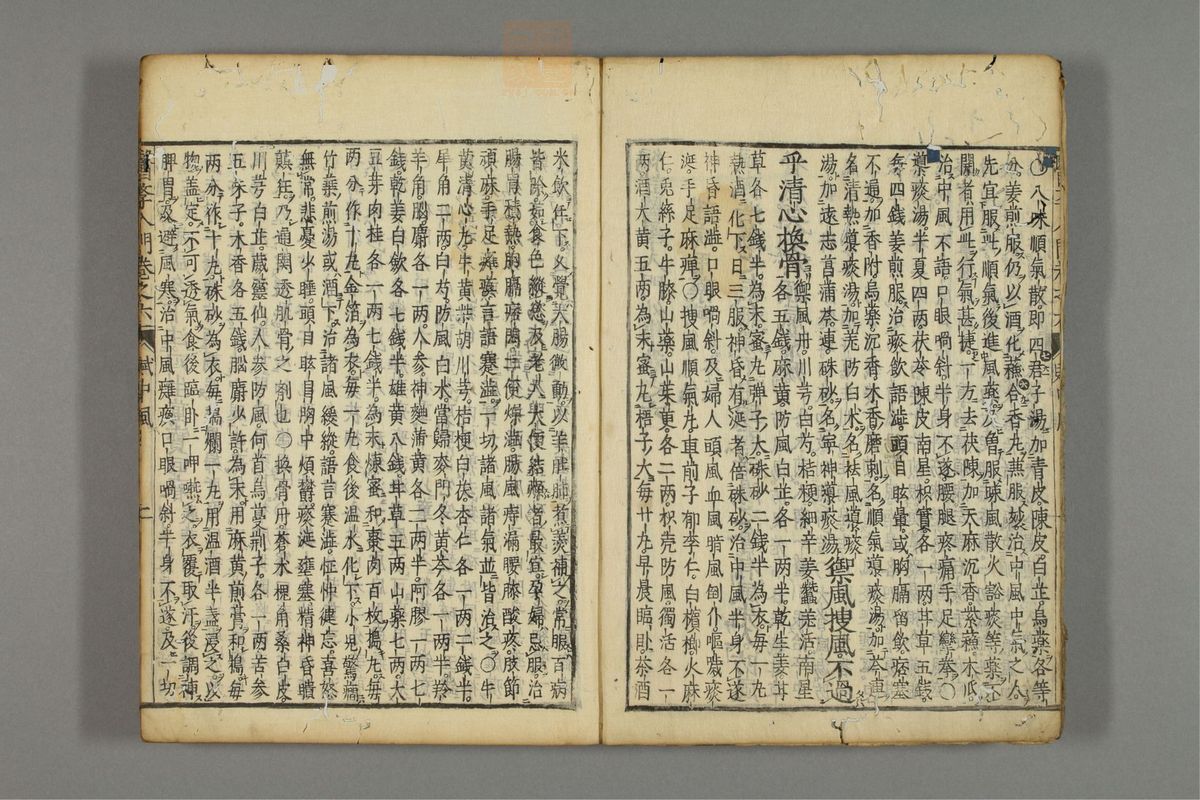 ○八味順氣散即四君子湯加青皮陳皮白芷烏藥各等
分姜前服仍以酒化蘇合香丸燕服治中風中氣之人
先宜服此順氣後進風藥
開者用此行氣甚捷一方去茯陳加天麻沉香紫蘇木瓜
治中風不語口眼喎斜半身不遂腰腿疼痛手足攣拳○
導痰湯半夏四兩茯苓陳皮南星枳實各一兩甘草五錢
每四錢姜煎服治痰飲語澁頭目眩暈或胸膈留飲痞塞
不通加香附烏藥沉香木香磨刺名順氣導痰湯加芩連
名清熱導痰湯加羌防白朮名祛風導痰
湯加遠志菖蒲芩連硃砂名寧神導痰湯禦風搜風不過
乎清心換骨禦風丹川芎白芍桔梗細辛姜蠶羌活南星
各五錢麻黄防風白芷各一兩半乾生姜甘
草各七錢半爲末蜜丸彈子大硃砂二錢半爲衣每一丸
熱酒化下日三服神昏有涎者倍硃砂治中風半身不遂
神昏語澁口眼喎斜及婦人頭風血風暗風倒仆嘔噦痰
涎手足麻痺○搜風順氣丸車前子郁李仁白檳榔火麻
仁兎絲子牛膝山藥山茱萸各二兩枳壳防風獨活各一
兩酒大黄五兩爲末蜜丸梧子大每廿丸早晨臨臥茶酒
米飲任下久覺大腸微動以羊肚肺煮羹補之常服百病
皆除如食色縱慾及老人大便結燥者最宜孕婦忌服治
腸胃積熱胸膈痞悶二便燥澁腸風痔漏腰膝酸疼肢節
頑麻手足癱瘓言語蹇澁一切諸風諸氣並皆治之○牛
黄清心丸牛黄柴胡川芎桔梗白茯杏仁各一兩二錢半
犀角二兩白芍防風白朮當歸麥門冬黄芩各一兩半羚
羊角腦麝各一兩人參神麯蒲黄各二兩半阿膠一兩七
錢乾姜白斂各七錢半雄黄八錢甘草五兩山藥七兩大
豆芽肉桂各一兩七錢半爲末煉蜜和棗肉百枚搗丸每
兩分作十丸金箔爲衣每一丸食後温水化下小兒驚癇
竹葉煎湯或酒下治諸風緩縱語言蹇澁怔忡健忘喜怒
無常悲憂少睡頭目眩冒胸中煩鬱痰涎壅塞精神昏憒
巓狂乃通關透肌骨之劑也○換骨丹蒼朮槐角桑白皮
川芎白芷葳靈仙人參防風何首烏蔓荆子各一兩苦參
五味子木香各五錢腦麝少許爲末用麻黄煎膏和搗每
兩分作十丸硃砂爲衣每噙爛一丸用温酒半盞浸之以
物盖定不可透氣食後臨卧一呷嚥之衣覆取汗後調補
脾胃及避風寒治中風癱瘓口眼喎斜半身不遂及一切